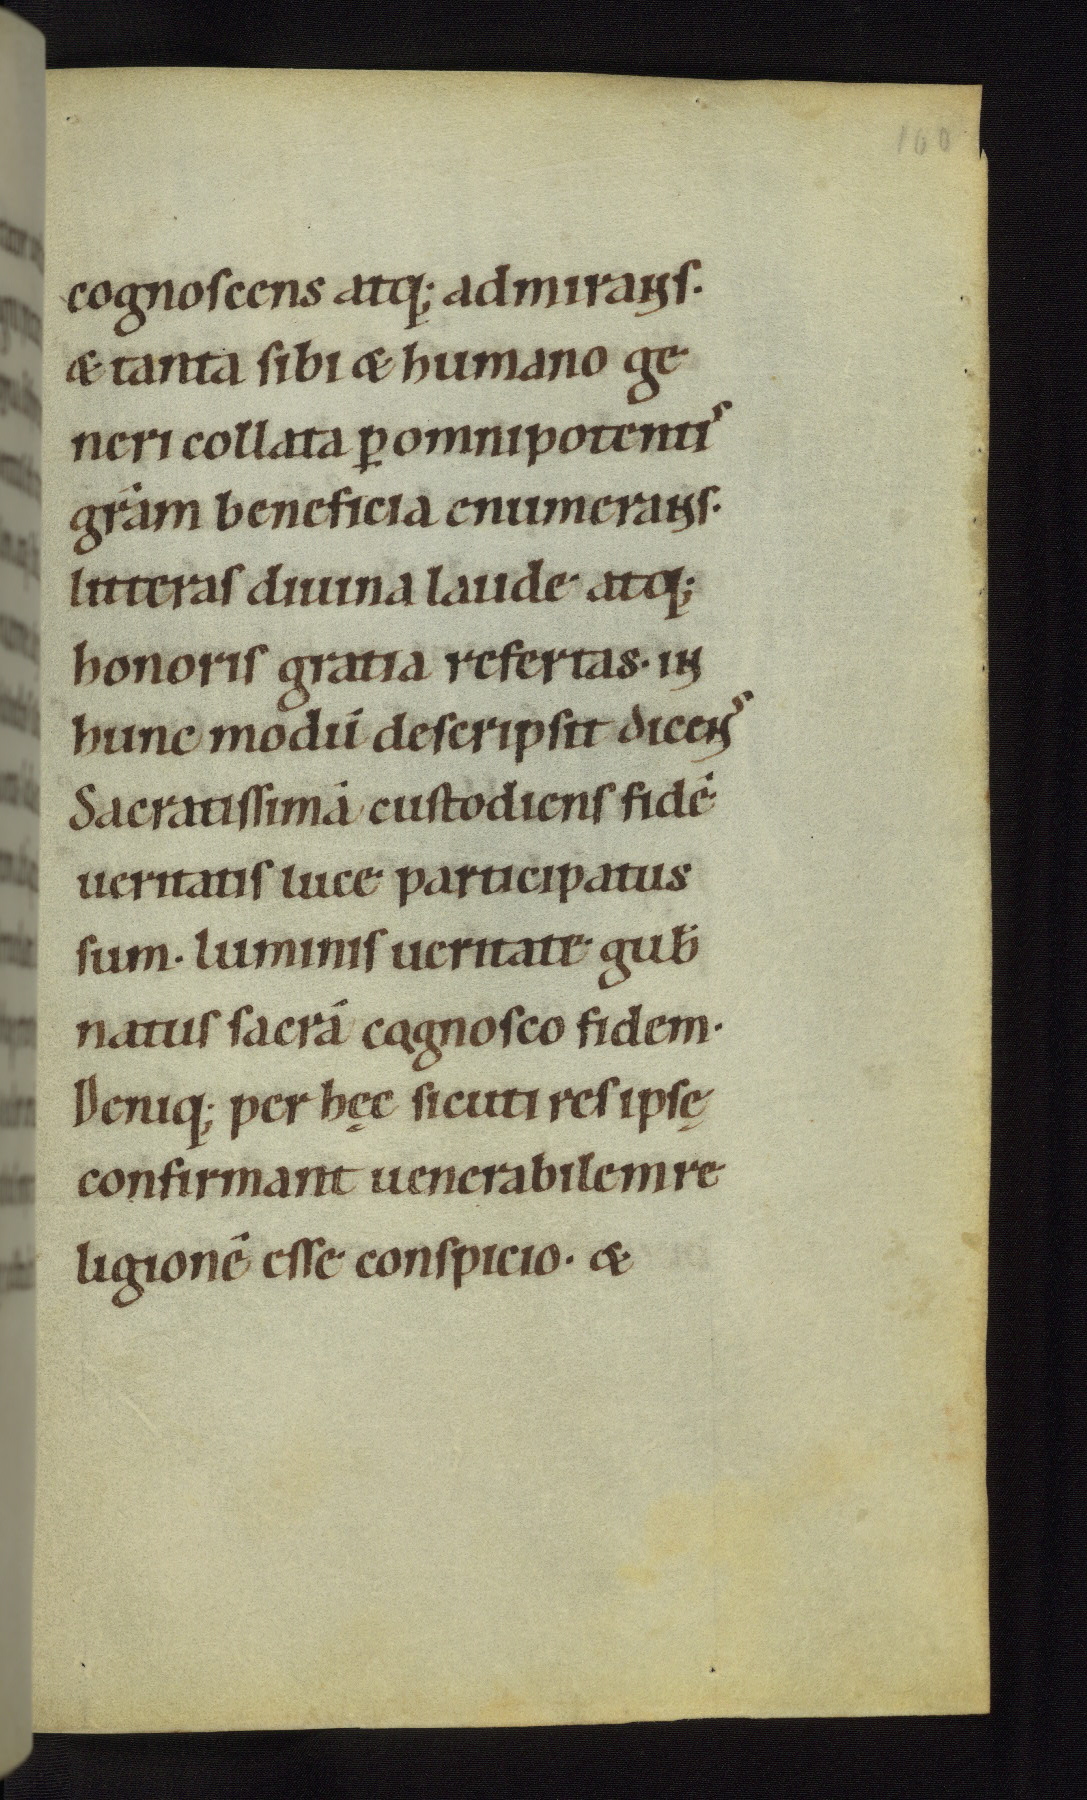 100
cognoscens atq; admirans.
& tanta sibi & humano ge
neri collata ꝑ omnipotentis
grām beneficia enumerans.
litteras diuina laude atq;
honoris gratia refertas. in
hunc modū descripsit dicens
Sacratissimā custodiens fidē
ueritatis luce participatus
sum. luminis ueritate gub̄
natus sacrā cognosco fidem.
Deniq; per hęc sicuti res ipsę
confirmant uenerabilem re
ligionē esse conspicio. &